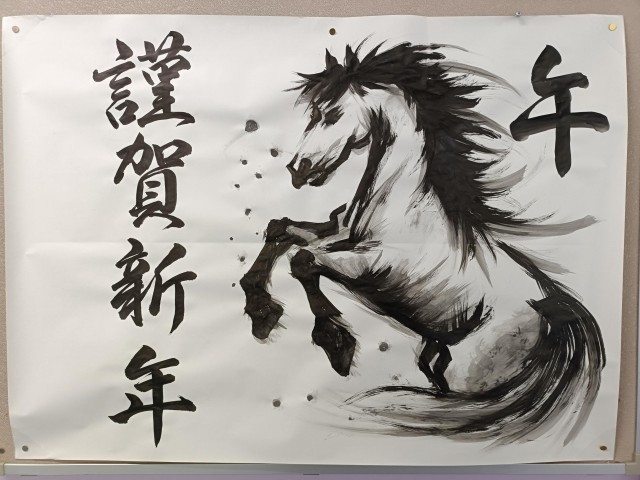 午
謹賀新年